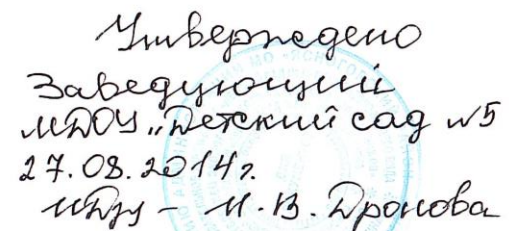 Утверждено
Заведующий
МДОУ „Детский сад №5
27.08.2014г.
И.В. Дронова